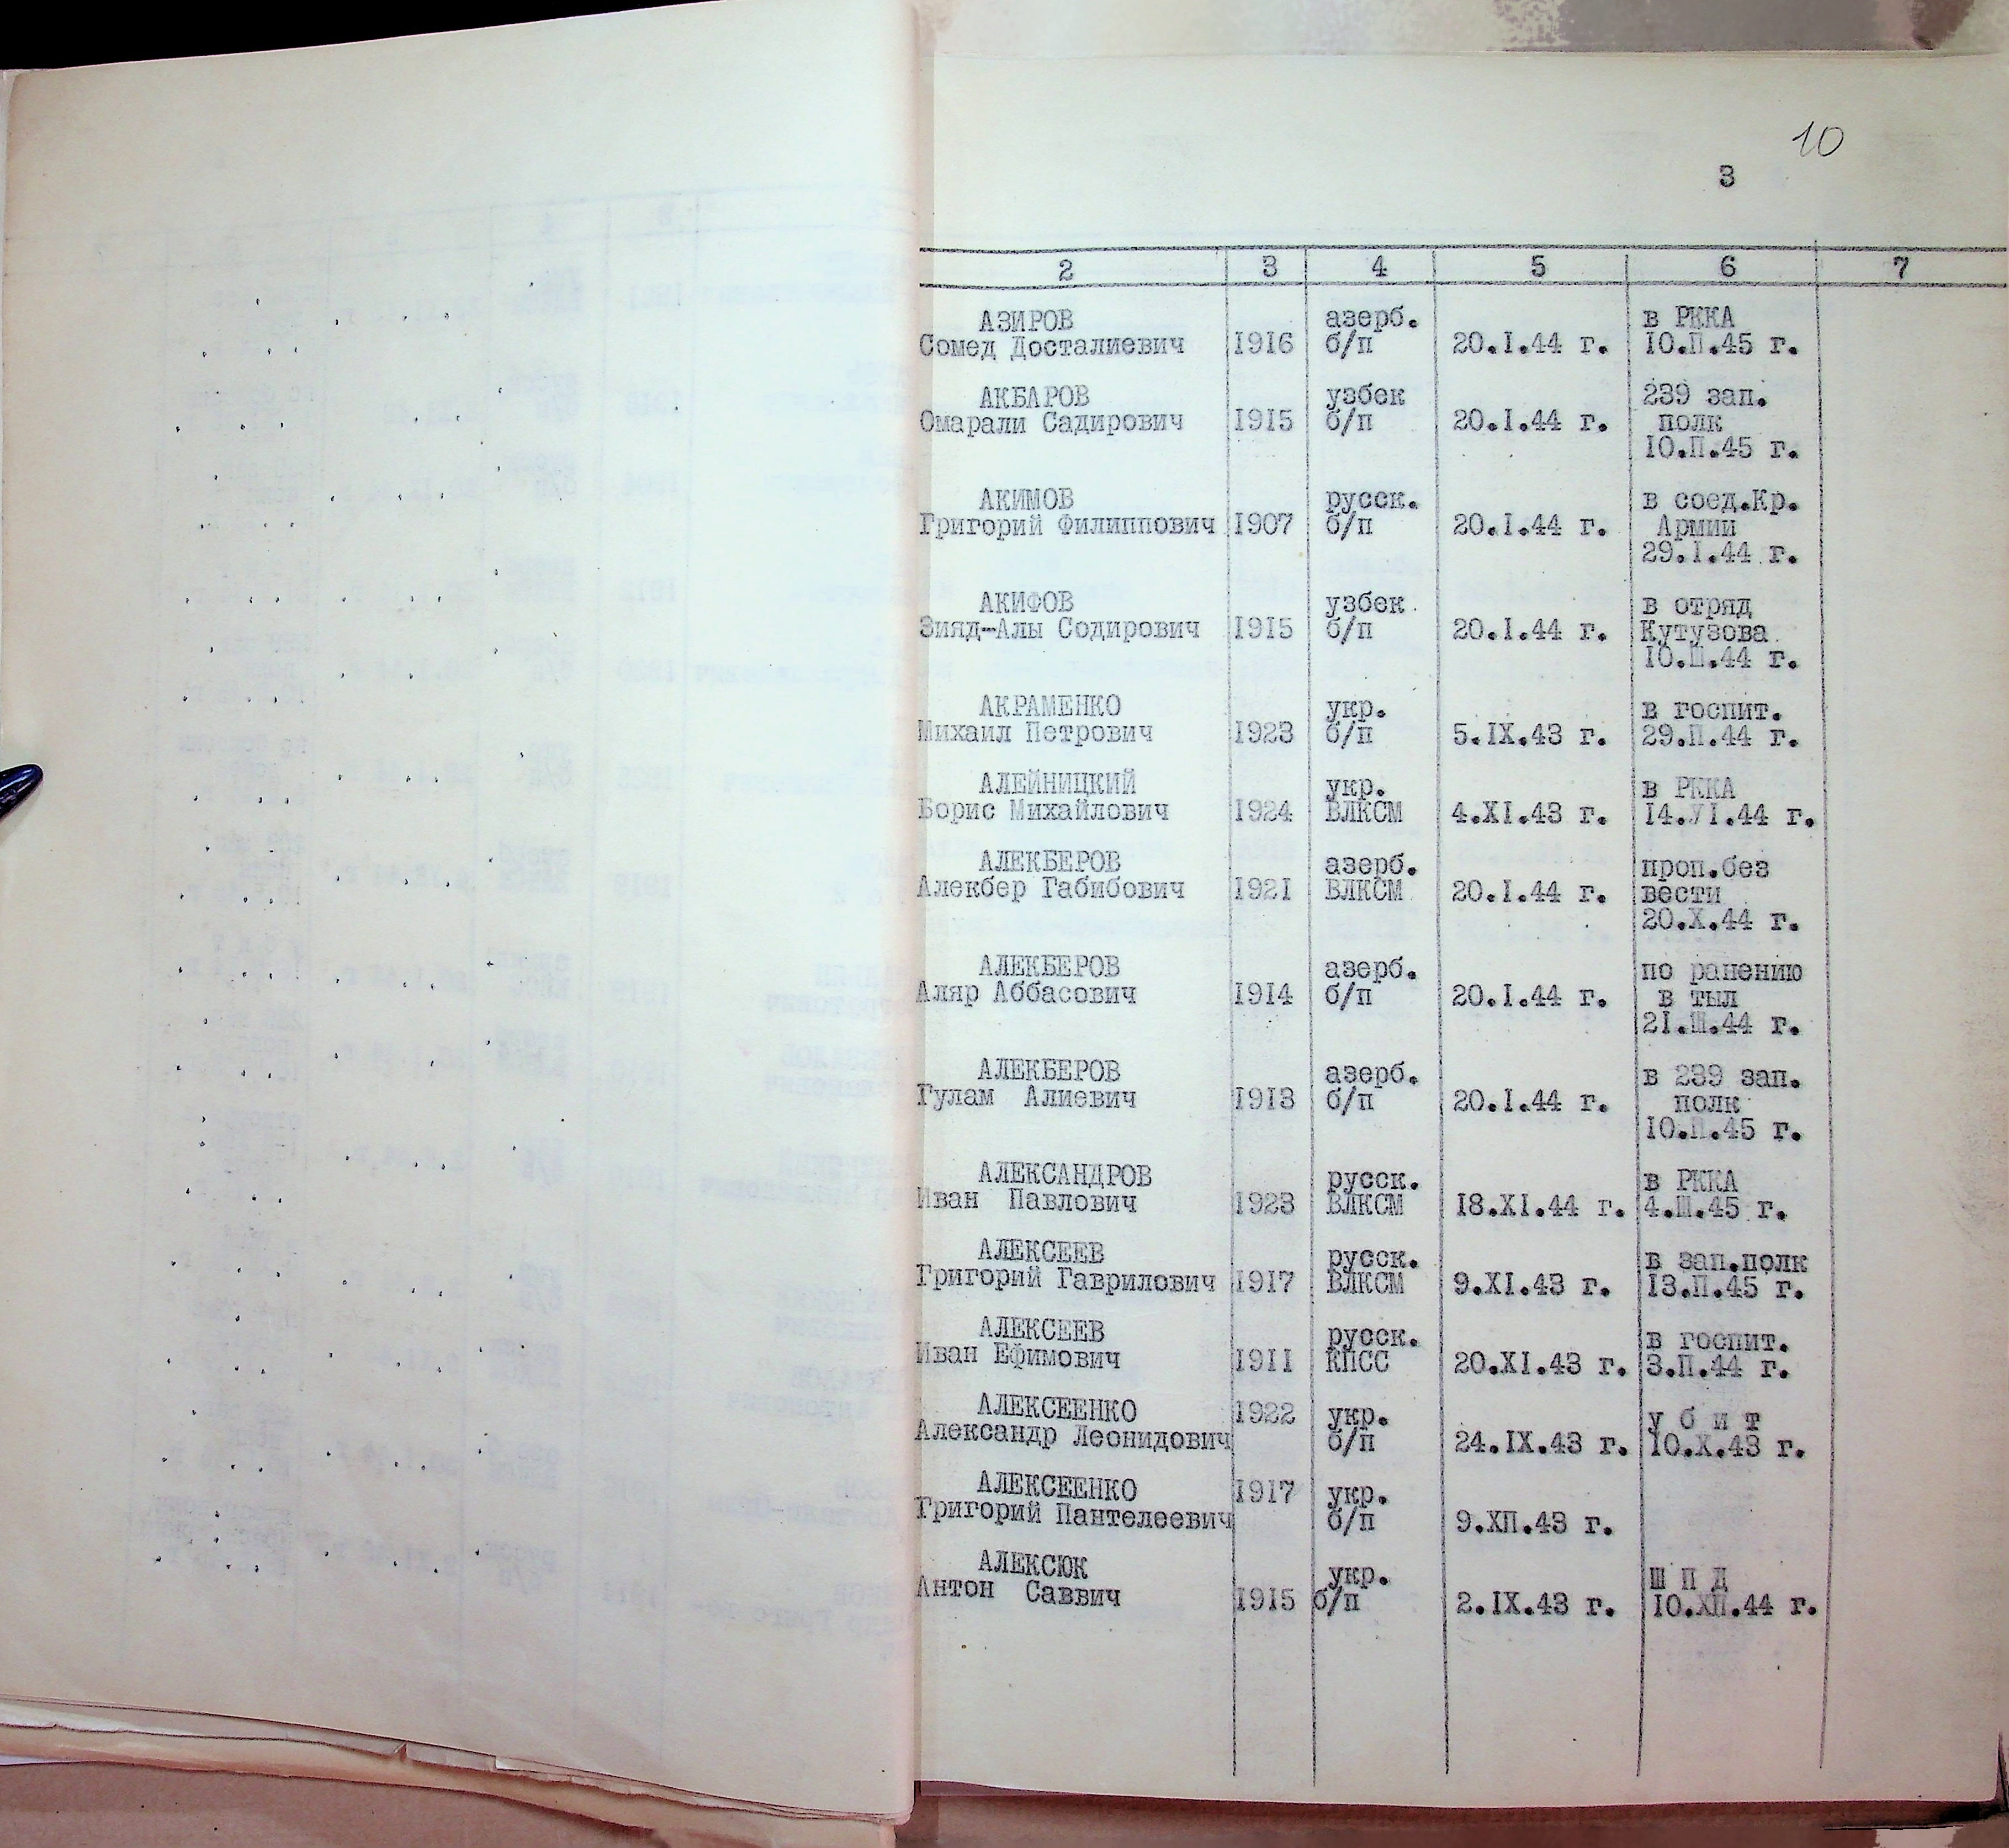 10
3
2 3 4 5 6 7
АЗИРОВ азерб. в РККА
Сомед Досталиевич 1916 б/п 20.I.44 г. 10.П.45 г.
АКБАРОВ узбек 239 зап.
Омарали Садирович 1915 б/п 20.I.44 г. полк
10.П.45 г.
АКИМОВ русск. в соед.Кр.
Григорий Филиппович 1907 б/п 20.I.44 г. Армии
29.I.44 г.
АКИФОВ узбек в отряд
Зияд-Алы Содирович 1915 б/п 20.I.44 г. Кутузова
10.Ш.44 г.
АКРАМЕНКО укр. в госпит.
Михаил Петрович 1923 б/п 5.IX.43 г. 29.П.44 г.
АЛЕЙНИЦКИЙ укр. в РККА
Борис Михайлович 1924 ВЛКСМ 4.XI.43 г. 14.УI.44 г.
АЛЕКБЕРОВ азерб. проп.без
Алекбер Габибович 1921 ВЛКСМ 20.I.44 г. вести
20.X.44 г.
АЛЕКБЕРОВ азерб. по ранению
Аляр Аббасович 1914 б/п 20.I.44 г. в тыл
21.Ш.44 г.
АЛЕКБЕРОВ азерб. в 239 зап.
Гулам Алиевич 1913 б/п 20.I.44 г. полк
10.П.45 г.
АЛЕКСАНДРОВ русск. в РККА
Иван Павлович 1923 ВЛКСМ 18.XI.44 г. 4.Ш.45 г.
АЛЕКСЕЕВ русск. в зап.полк
Григорий Гаврилович 1917 ВЛКСМ 9.XI.43 г. 13.П.45 г.
АЛЕКСЕЕВ русск. в госпит.
Иван Ефимович 1911 КПСС 20.XI.43 г. 3.П.44 г.
АЛЕКСЕЕНКО 1922 укр. у б и т
Александр Леонидович б/п 24.IX.43 г. 10.X.43 г.
АЛЕКСЕЕНКО 1917 укр.
Григорий Пантелеевич б/п 9.ХП.43 г.
АЛЕКСЮК укр. Ш П Д
Антон Саввич 1915 б/п 2.IX.43 г. 10.ХП.44 г.